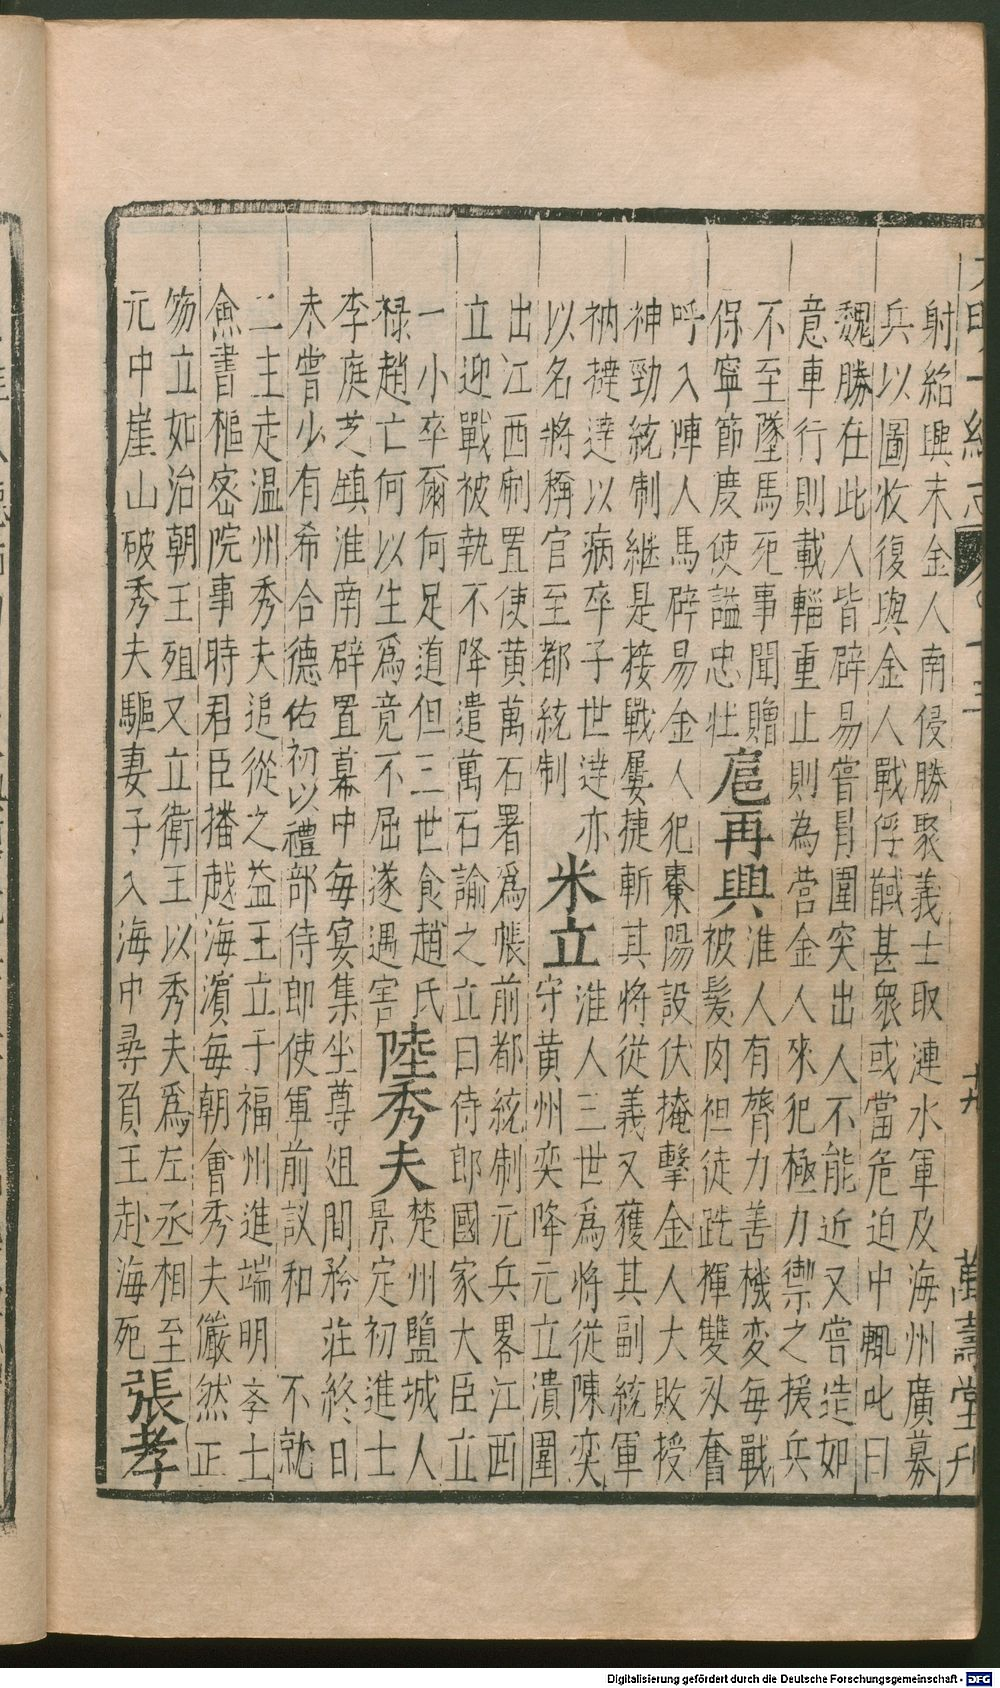 大明一統志
萬壽堂刊
射紹興末金人南侵勝聚義士取漣水軍及海州廣募
兵以圖收復與金人戰俘馘甚衆或當危迫中輒叱曰
魏勝在此人皆辟易嘗冐圍突出人不能近又嘗造如
意車行則載輜重止則為营金人來犯極力禦之援兵
不至墜馬死事聞贈
保寧節度使謚忠壯
扈再興
淮人有膂力善機変毎戰
被髮肉袒徒跣揮雙刄奮
呼入陣人馬辟易金人犯棗陽設伏掩擊金人大敗授
神勁統制継是接戰屢捷斬其將從義又獲其副統軍
衲撻達以病卒子世達亦
以名將稱官至都統制
米立
淮人三世爲將從陳奕
守黄州奕降元立潰圍
出江西制置使黄萬石署爲帳前都統制元兵畧江西
立迎戰被執不降遣萬石諭之立曰侍郎國家大臣立
一小卒爾何足道但三世食趙氏
禄趙亡何以生爲竟不屈遂遇害
陸秀夫
楚州鹽城人
景定初進士
李庭芝鎮淮南辟置幕中毎宴集坐尊俎間矜莊終日
未嘗少有希合德佑初以禮部侍郎使軍前議和不就
二主走温州秀夫追從之益王立于福州進端明斈士
僉書樞宻院事時君臣播越海濵毎朝會秀夫儼然正
笏立如治朝王殂又立衛王以秀夫爲左丞相至
元中崖山破秀夫驅妻子入海中尋負王赴海死
張孝
Digitalisierung gefördert durch die Deutsche Forschungsgemeinschaft - DFG